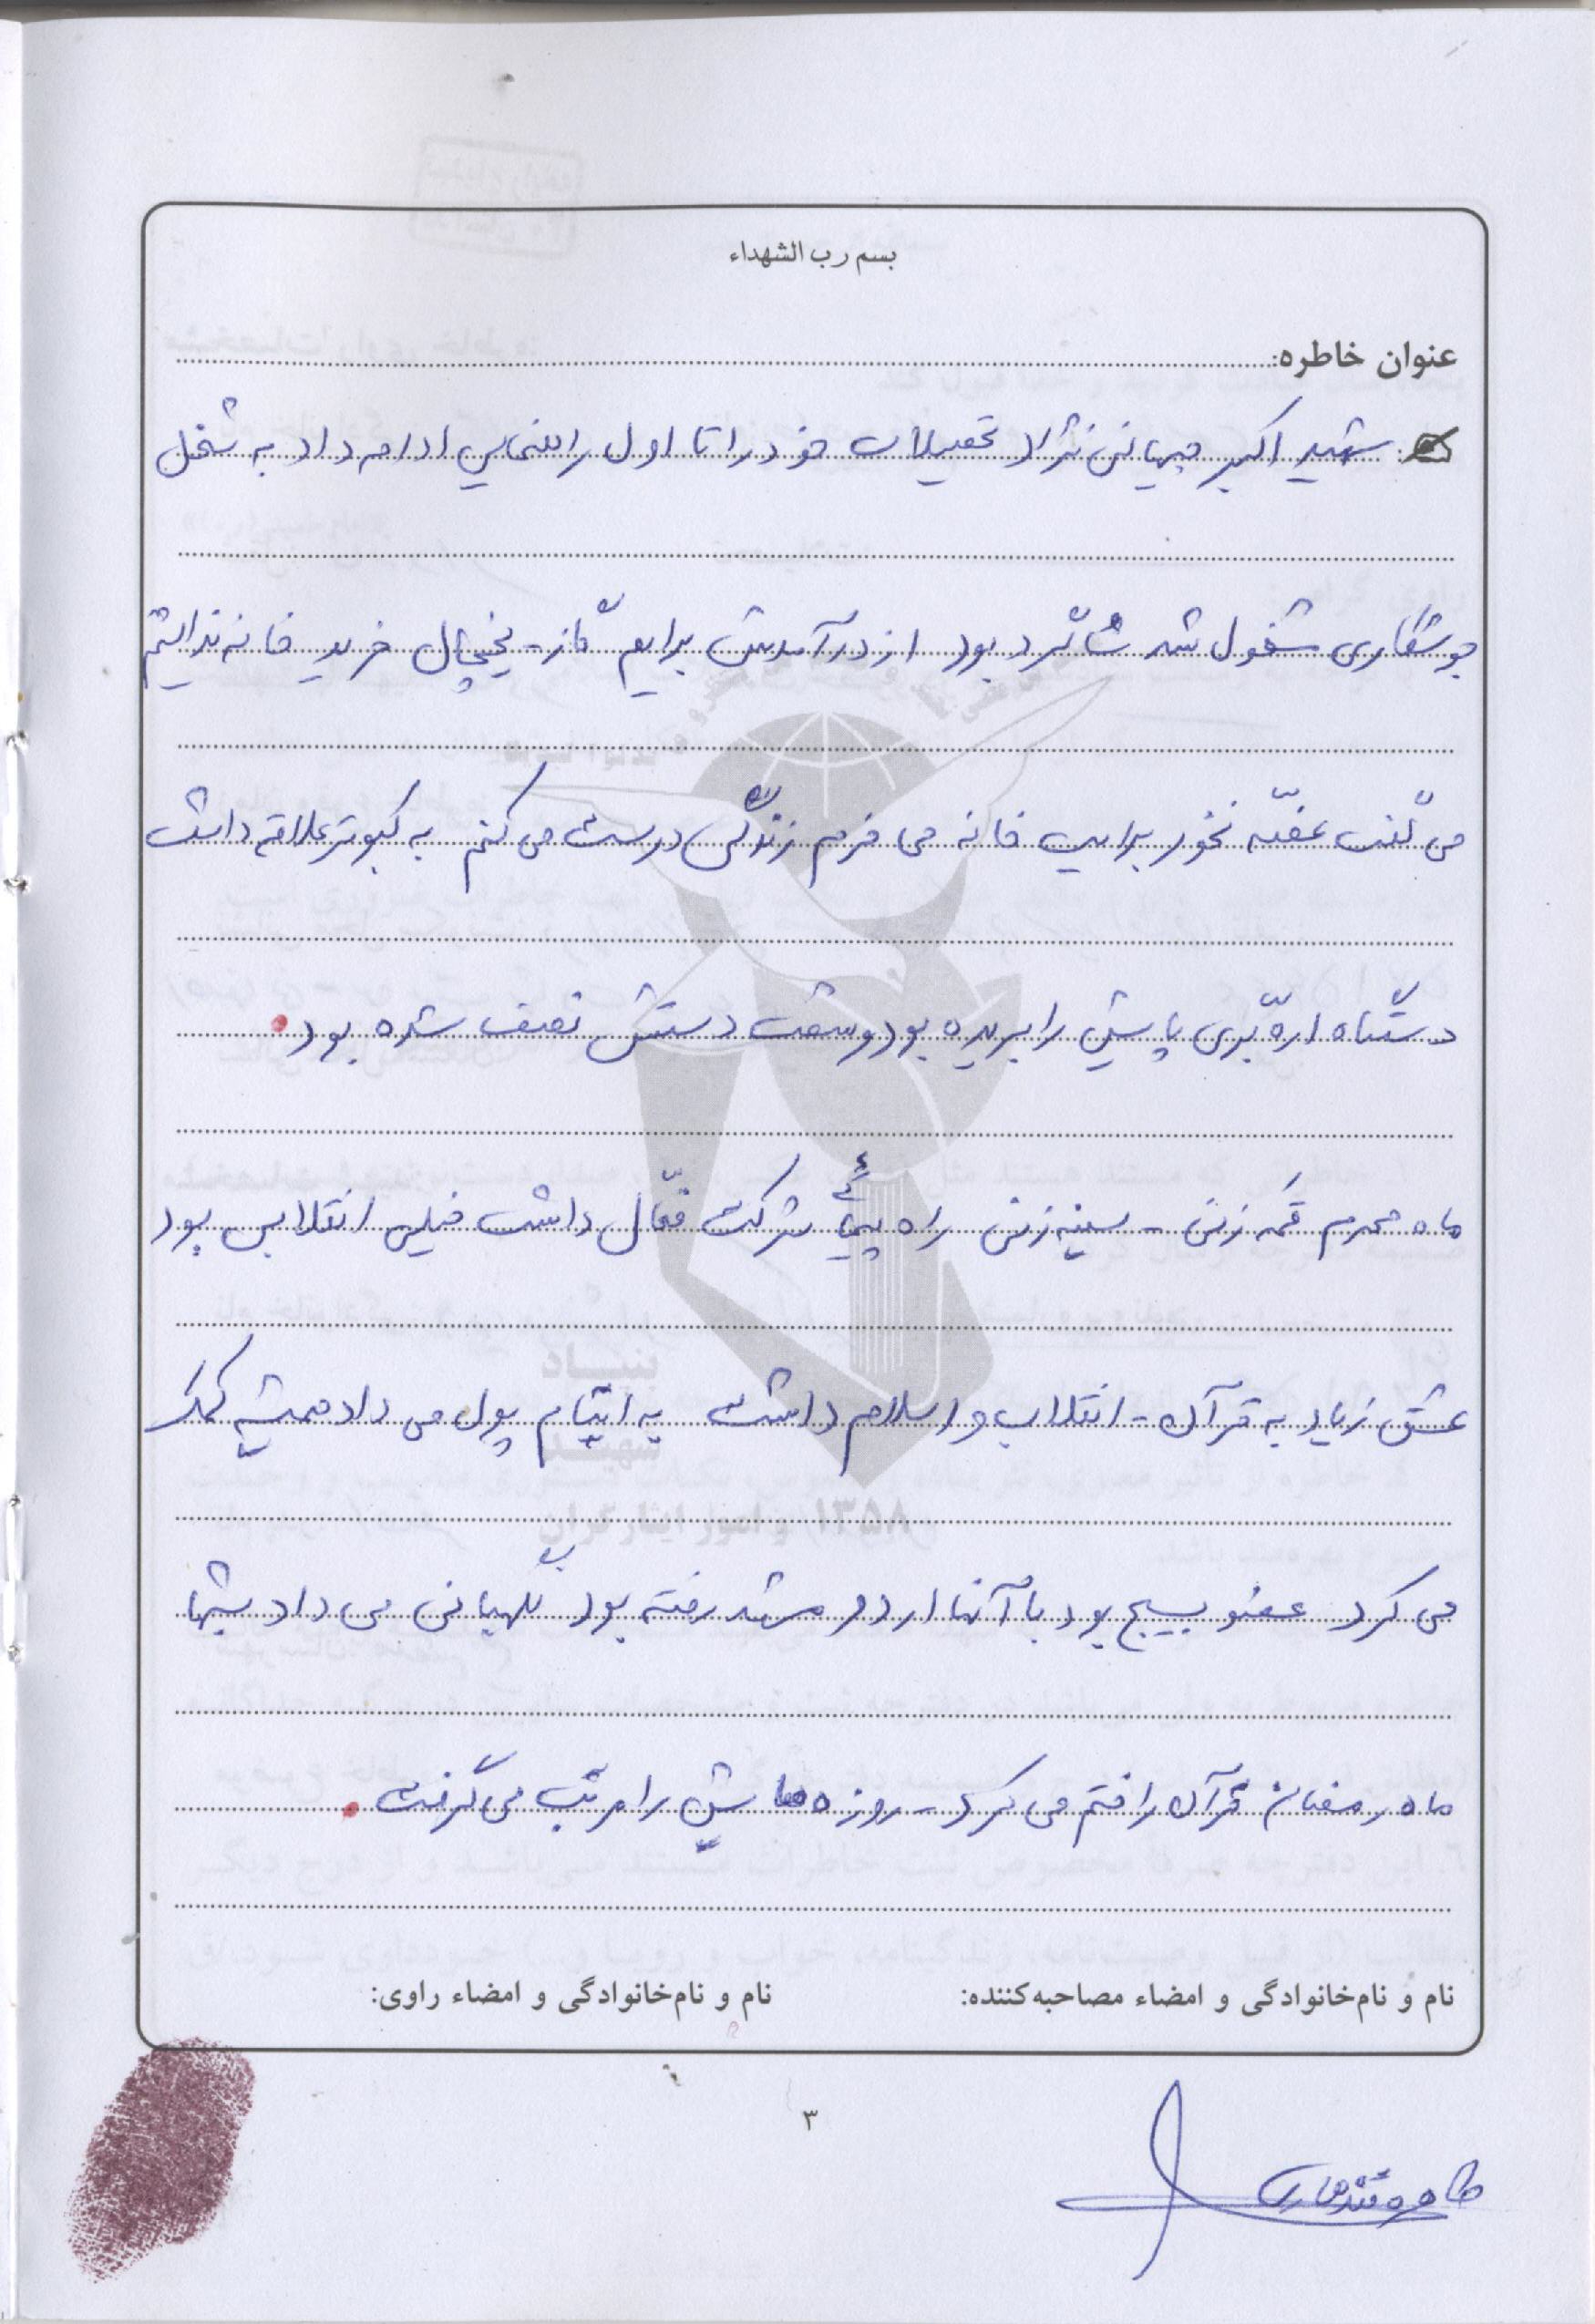 بسم رب الشهداء
عنوان خاطره:
شهید اکبر جهانی نژاد تحصیلات خود را تا اول راهنمایی ادامه داد به شغل
جوشکاری مشغول شد شاگرد بود از درآمدش برایم گاز - یخچال خرید خانه نداشتم
می گفت غصّه نخور برایت خانه می خرم زندگی درست می کنم به کبوتر علاقه داشت
دستگاه ارّه بّری پایش را بریده بود و شصت دستش نصف شده بود.
ماه محرم قمه زنی - سینه زنی راه پیمائی شرکت فعّال داشت خیلی انقلابی بود
عشق زیاد به قرآن - انقلاب و اسلام داشت به ایتام پول می داد همیشه کمک
می کرد عضو بسیج بود با آنها اردو مشهد رفته بود نگهبانی می داد شبها
ماه رمضان قرآن را ختم می کرد - روزه هایش را مرتب می گرفت.
نام و نام‌خانوادگی و امضاء مصاحبه‌کننده:
نام و نام‌خانوادگی و امضاء راوی:
۳
طاهره قندهاری
بنیاد
شهید
و امور ایثارگران
۱۳۵۸